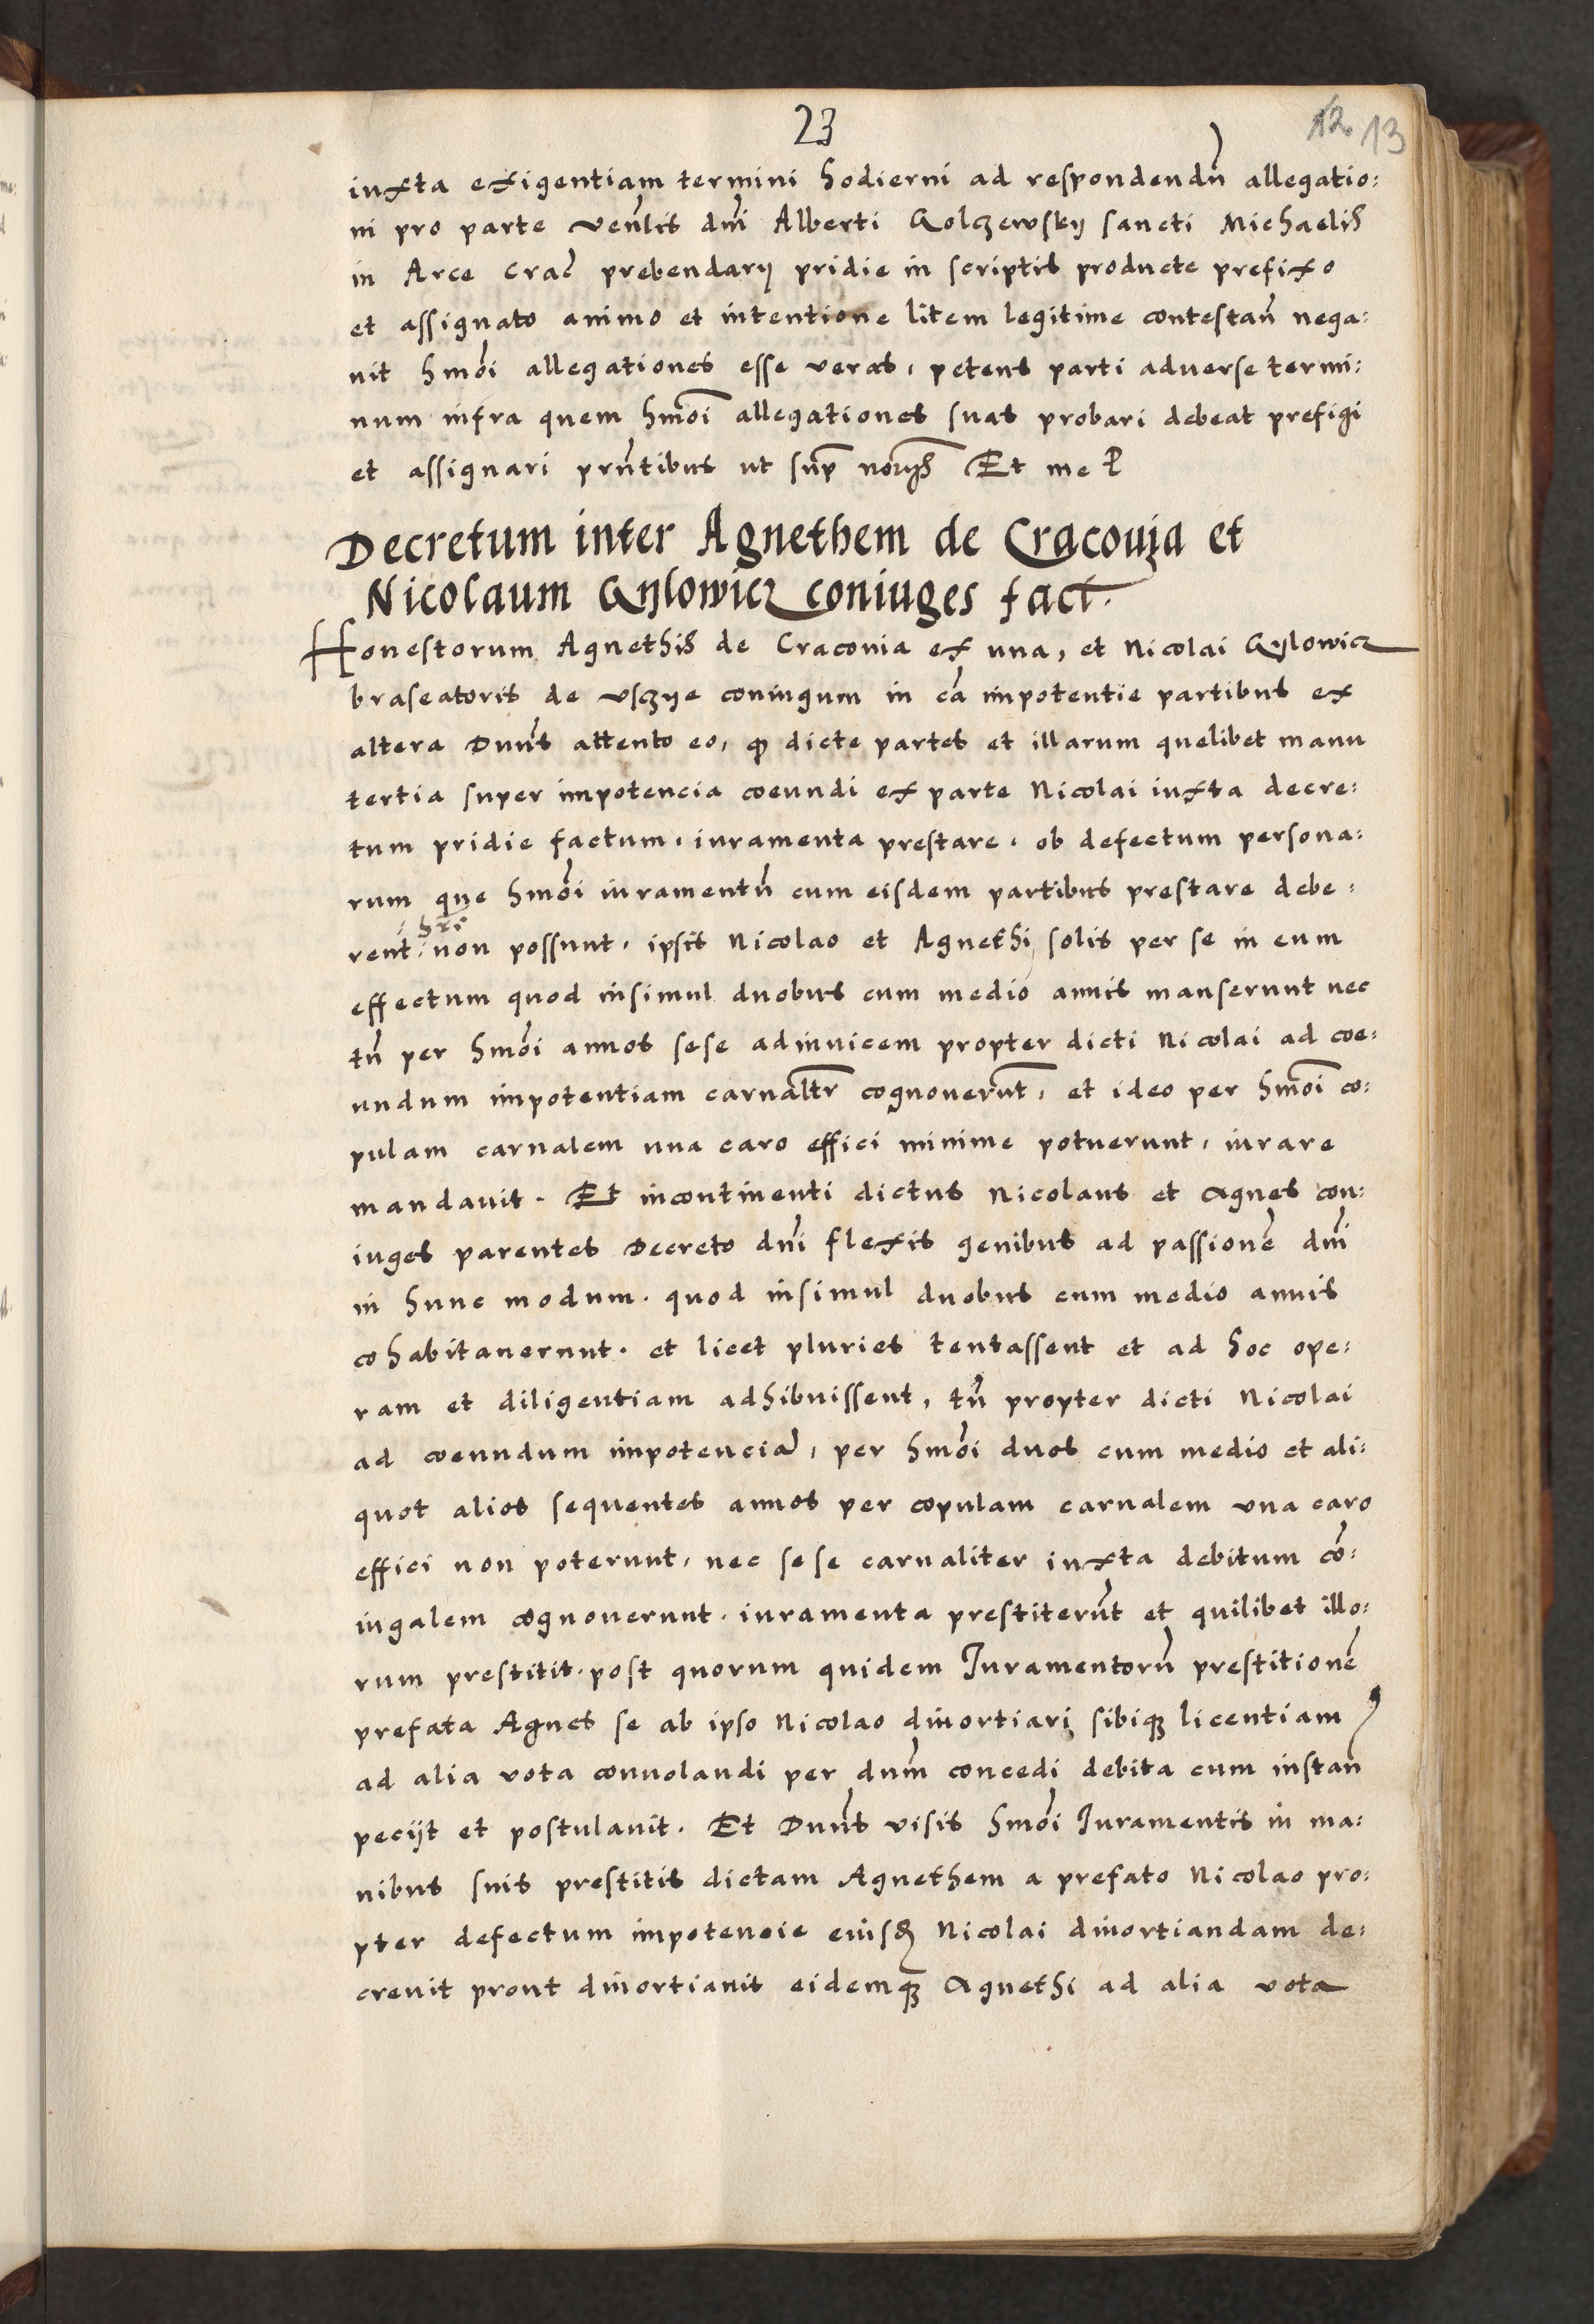 23
12 13
iuxta exigentiam termini hodierni ad respondendũ allegatio:
ni pro parte Venlis dni Alberti Golczewskij sancti Michaelis
in Arce Crac prebendarij pridie in scriptis producte prefixo
et assignato animo et intentione litem legitime contestan̄ nega:
uit hmoi allegationes esse veras, petens parti aduerse termi:
num infra quem hmoi allegationes suas probari debeat prefigi
et assignari pn̄tibus ut sup Et me
Decretum inter Agnethem de Cracouia et
Nicolaum Gylowicz coniuges fact.
Honestorum Agnethis de Craconia ex una, et Nicolai Gylowicz
braseatoris de Vsczye coniugum in cā impotentie partibus ex
altera Dnūs attento eo, qd dicte partes et illarum quelibet manu
tertia super impotencia coeundi ex parte Nicolai iuxta decre:
tum pridie factum, iuramenta prestare, ob defectum persona:
rum que hmoi iuramentũ cum eisdem partibus prestare debe:
rent: hri non possunt, ipsis Nicolao et Agnethi solis per se in eum
effectum quod insimul duobus cum medio annis manserunt nec
tn̄ per hmoi annos sese adinuicem propter dicti Nicolai ad coe:
undum impotentiam carnaltr cognouerunt, et ideo per hmoi co:
pulam carnalem una caro effici minime potuerunt, iurare
mandauit. Et incontinenti dictus Nicolaus et Agnes con:
iuges parentes Decreto dni flexis genibus ad passionē dni
in hunc modum. quod insimul duobus cum medio annis
cohabitauerunt. et licet pluries tentassent et ad hoc ope:
ram et diligentiam adhibuissent, tn̄ propter dicti Nicolai
ad coeundum impotenciā, per hmoi duos cum medio et ali:
quot alios sequentes annos per copulam carnalem una caro
effici non poterunt, nec sese carnaliter iuxta debitum cō:
iugalem cognouerunt. iuramenta prestiterūt et quilibet illo:
rum prestitit. post quorum quidem Iuramentorū prestitionē
prefata Agnes se ab ipso Nicolao diuortiari sibiq3 licentiam
ad alia vota conuolandi per dnm̄ concedi debita cum instan̄
pecijt et postulauit. Et Dnūs visis hmoi Iuramentis in ma:
nibus suis prestitis dictam Agnethem a prefato Nicolao pro:
pter defectum impotencie eiusd Nicolai diuortiandam de:
creuit prout diuortiauit eidemq3 Agnethi ad alia vota